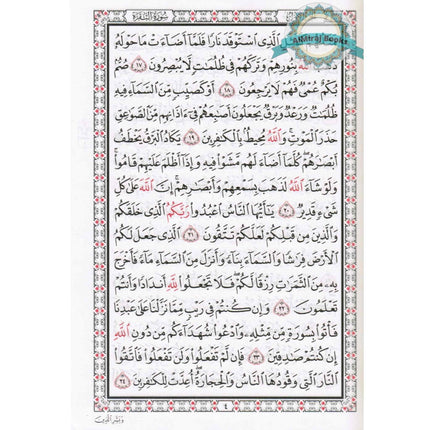 سُورَةُ البَقَرَةِ
AlMiraj Books
الَّذِي اسْتَوْقَدَ نَارًا فَلَمَّا أَضَاءَتْ مَا حَوْلَهُ
اللَّهُ بِنُورِهِمْ وَتَرَكَهُمْ فِي ظُلُمَاتٍ لَّا يُبْصِرُونَ ١٧ صُمٌّ
بُكْمٌ عُمْيٌ فَهُمْ لَا يَرْجِعُونَ ١٨ أَوْ كَصَيِّبٍ مِّنَ السَّمَاءِ فِيهِ
ظُلُمَاتٌ وَرَعْدٌ وَبَرْقٌ يَجْعَلُونَ أَصَابِعَهُمْ فِي آذَانِهِم مِّنَ الصَّوَاعِقِ
حَذَرَ الْمَوْتِ وَاللَّهُ مُحِيطٌ بِالْكَافِرِينَ ١٩ يَكَادُ الْبَرْقُ يَخْطَفُ
أَبْصَارَهُمْ كُلَّمَا أَضَاءَ لَهُم مَّشَوْا فِيهِ وَإِذَا أَظْلَمَ عَلَيْهِمْ قَامُوا
وَلَوْ شَاءَ اللَّهُ لَذَهَبَ بِسَمْعِهِمْ وَأَبْصَارِهِمْ إِنَّ اللَّهَ عَلَى كُلِّ
شَيْءٍ قَدِيرٌ ٢٠ يَا أَيُّهَا النَّاسُ اعْبُدُوا رَبَّكُمُ الَّذِي خَلَقَكُمْ
وَالَّذِينَ مِن قَبْلِكُمْ لَعَلَّكُمْ تَتَّقُونَ ٢١ الَّذِي جَعَلَ لَكُمُ
الْأَرْضَ فِرَاشًا وَالسَّمَاءَ بِنَاءً وَأَنزَلَ مِنَ السَّمَاءِ مَاءً فَأَخْرَجَ
بِهِ مِنَ الثَّمَرَاتِ رِزْقًا لَّكُمْ فَلَا تَجْعَلُوا لِلَّهِ أَندَادًا وَأَنتُمْ
تَعْلَمُونَ ٢٢ وَإِن كُنتُمْ فِي رَيْبٍ مِّمَّا نَزَّلْنَا عَلَى عَبْدِنَا
فَأْتُوا بِسُورَةٍ مِّن مِّثْلِهِ وَادْعُوا شُهَدَاءَكُم مِّن دُونِ اللَّهِ
إِن كُنتُمْ صَادِقِينَ ٢٣ فَإِن لَّمْ تَفْعَلُوا وَلَن تَفْعَلُوا فَاتَّقُوا
النَّارَ الَّتِي وَقُودُهَا النَّاسُ وَالْحِجَارَةُ أُعِدَّتْ لِلْكَافِرِينَ ٢٤
٤
وَبَشِّرِ الَّذِينَ